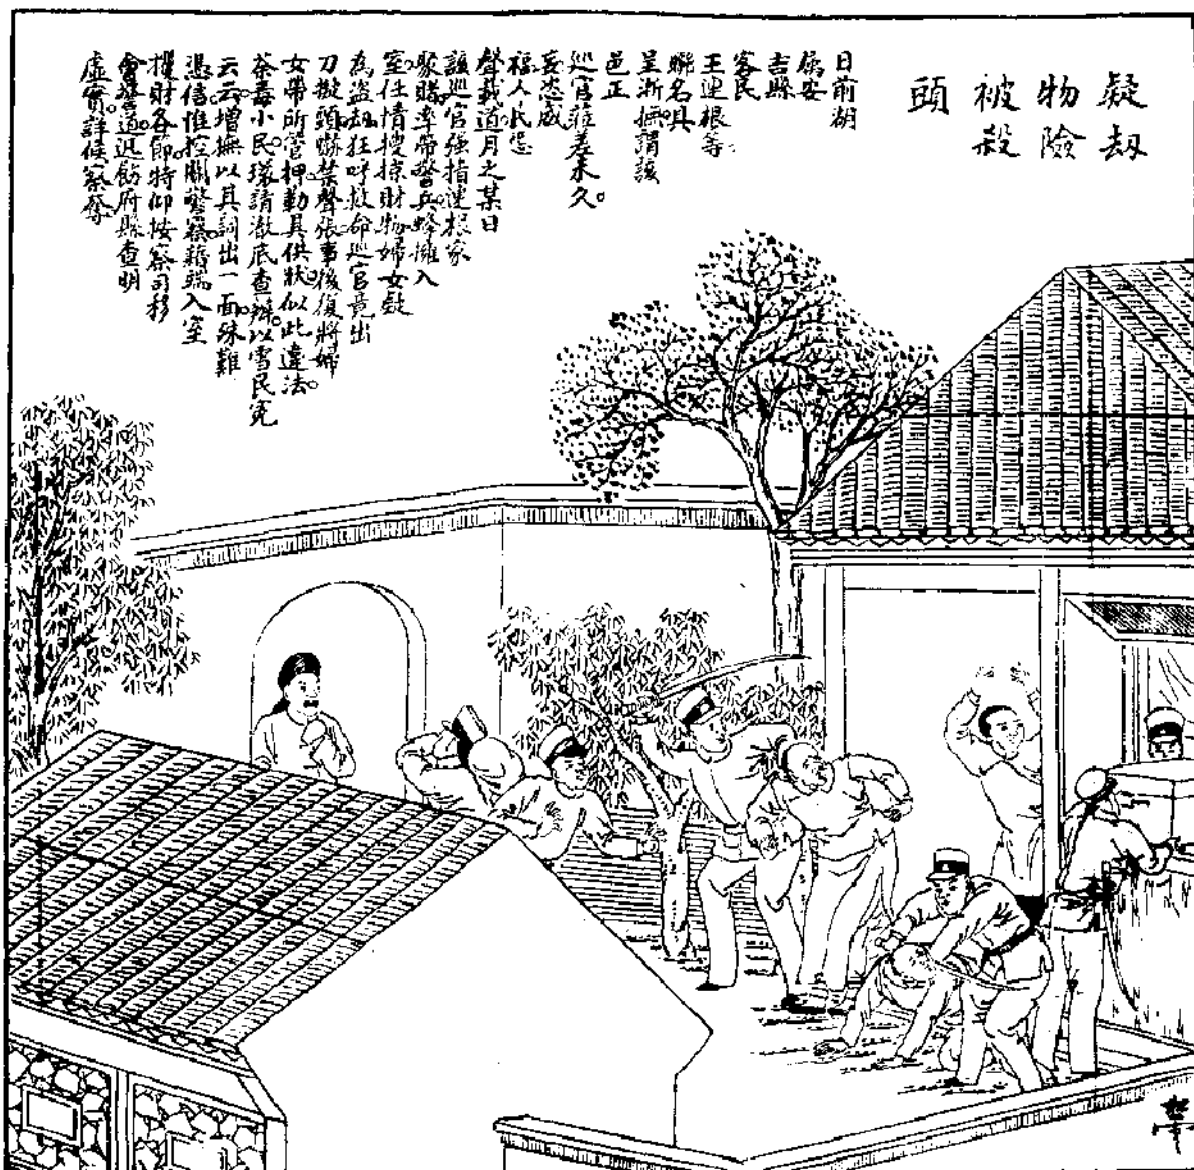 疑劫
物險
被殺
頭
日前湖
屬安
吉縣
客民
王連根等
聯名具
呈浙撫謂該
邑正
巡官蒞差未久。
妄恣威
福人民怨
聲載道月之某日
該巡官強指連根家
聚賭率帶警兵蜂擁入
室任情搜掠財物婦女疑
為盜劫狂呼救命巡官竟出
刀擬頭嚇禁聲張事後復將婦
女帶所管押勒具供狀似此違法
荼毒小民環請澈底查辦以雪民冤
云云增撫以其詞出一面殊難
憑信惟控關警察藉端入室
攫財各節特仰按察司移
會警道迅飭府縣查明
虛實詳候察奪